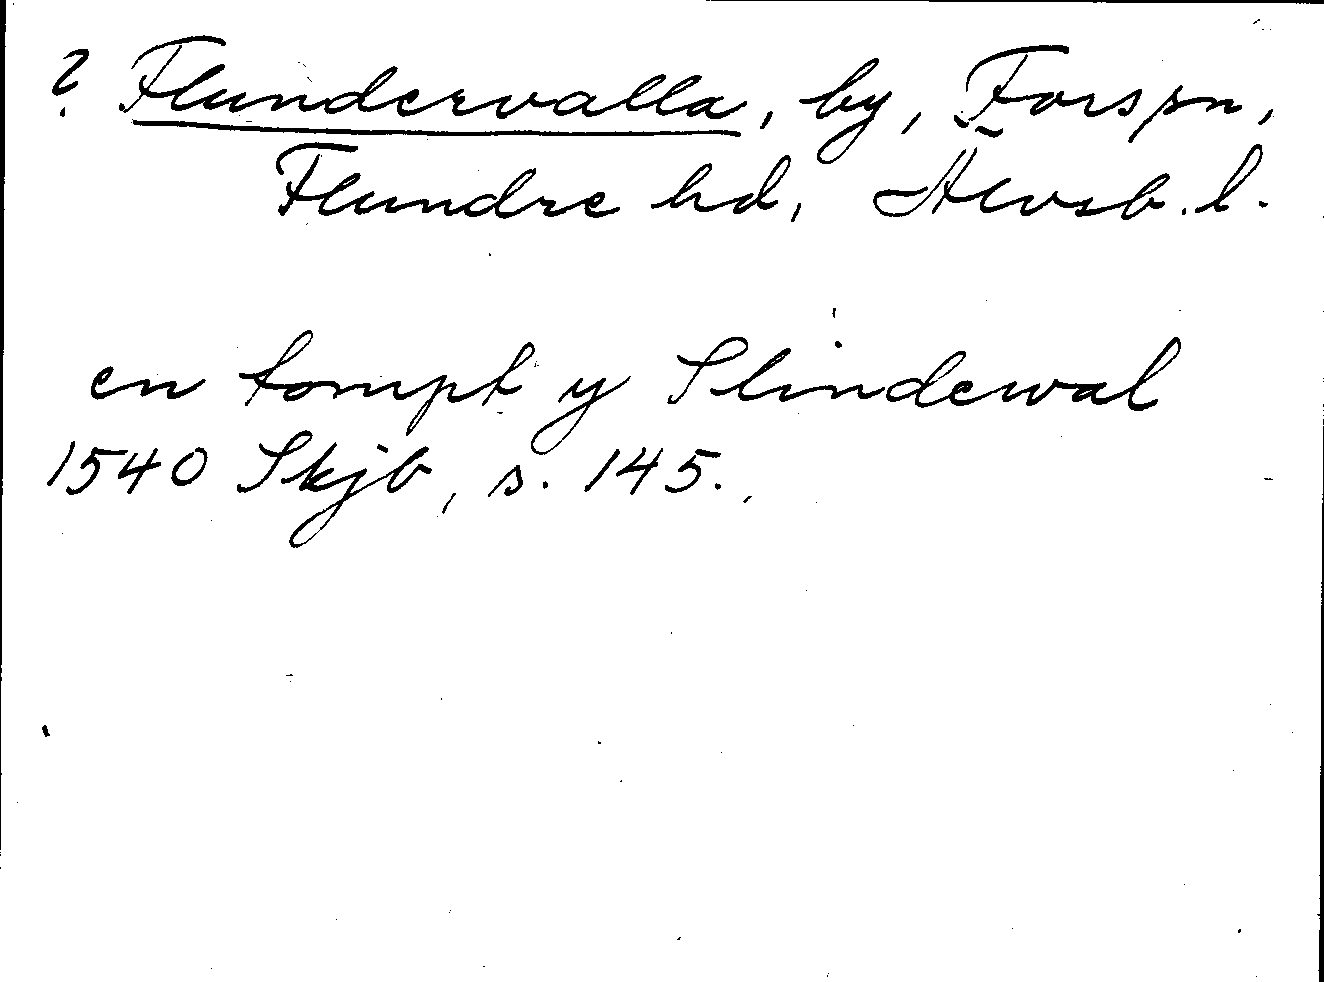 ? Flundervalla, by, Fors sn,
Flundre hd, Älvsb. l.
en tompt y Slindewal
1540 Skjb, s. 145.